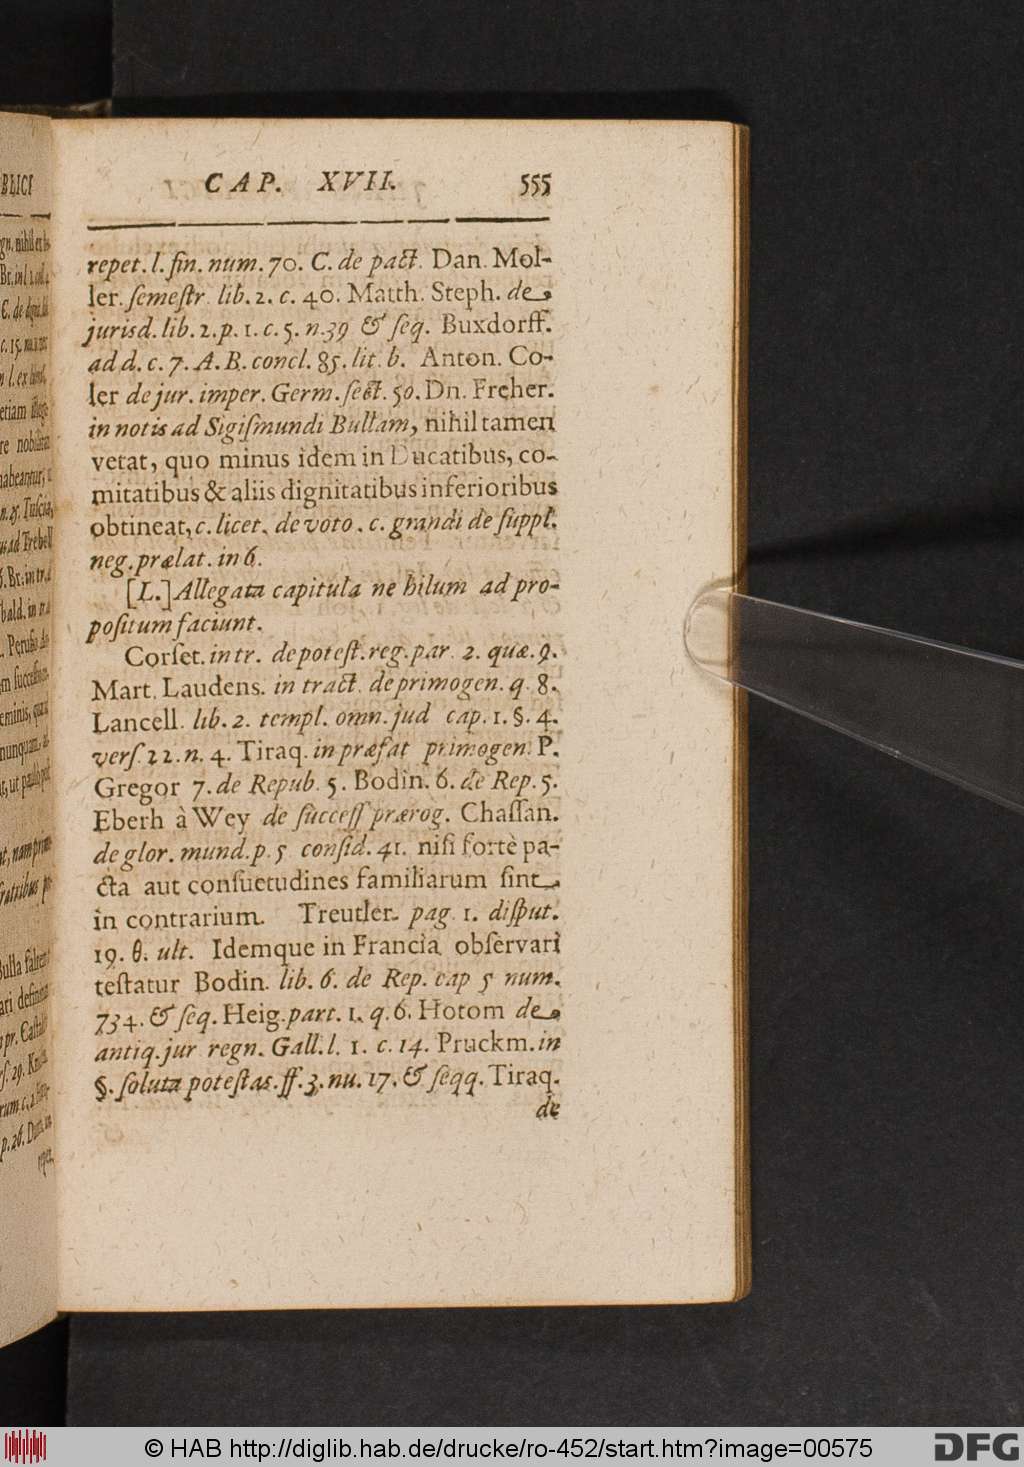 CAP. XVII. 555
repet. l. fin. num. 70. C. de pact. Dan. Mol-
ler. ſemeſtr. lib. 2. c. 40. Matth. Steph. de
jurisd. lib. 2. p. 1. c. 5. n. 39 & ſeq. Buxdorff.
ad d. c. 7. A. B. concl. 85. lit. b. Anton. Co-
ler de jur. imper. Germ. ſect. 50. Dn. Freher.
in notis ad Sigiſmundi Bullam, nihil tamen
vetat, quo minus idem in Ducatibus, co-
mitatibus & aliis dignitatibus inferioribus
obtineat, c. licet. de voto. c. grandi de ſuppl.
neg. prælat. in 6.
[L.] Allegata capitula ne hilum ad pro-
poſitum faciunt.
Corſet. in tr. de poteſt. reg. par. 2. quæ. 9.
Mart. Laudens. in tract. de primogen. q. 8.
Lancell. lib. 2. templ. omn. jud cap. 1. §. 4.
verſ. 22. n. 4. Tiraq. in præfat primogen. P.
Gregor 7. de Repub. 5. Bodin. 6. de Rep. 5.
Eberh à Wey de ſucceſſ prærog. Chaſſan.
de glor. mund. p. 5 conſid. 41. niſi fortè pa-
cta aut conſuetudines familiarum ſint
in contrarium. Treutler. pag. 1. diſput.
19. θ. ult. Idemque in Francia obſervari
teſtatur Bodin. lib. 6. de Rep. cap 5 num.
734. & ſeq. Heig. part. 1. q. 6. Hotom de
antiq. jur regn. Gall. l. 1. c. 14. Pruckm. in
§. ſoluta poteſtas. ff. 3. nu. 17. & ſeqq. Tiraq.
de
BLICI
© HAB http://diglib.hab.de/drucke/ro-452/start.htm?image=00575
DFG